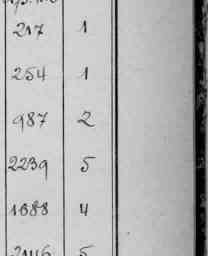 217 1
254 1
987 2
2239 5
1688 4
2146 5